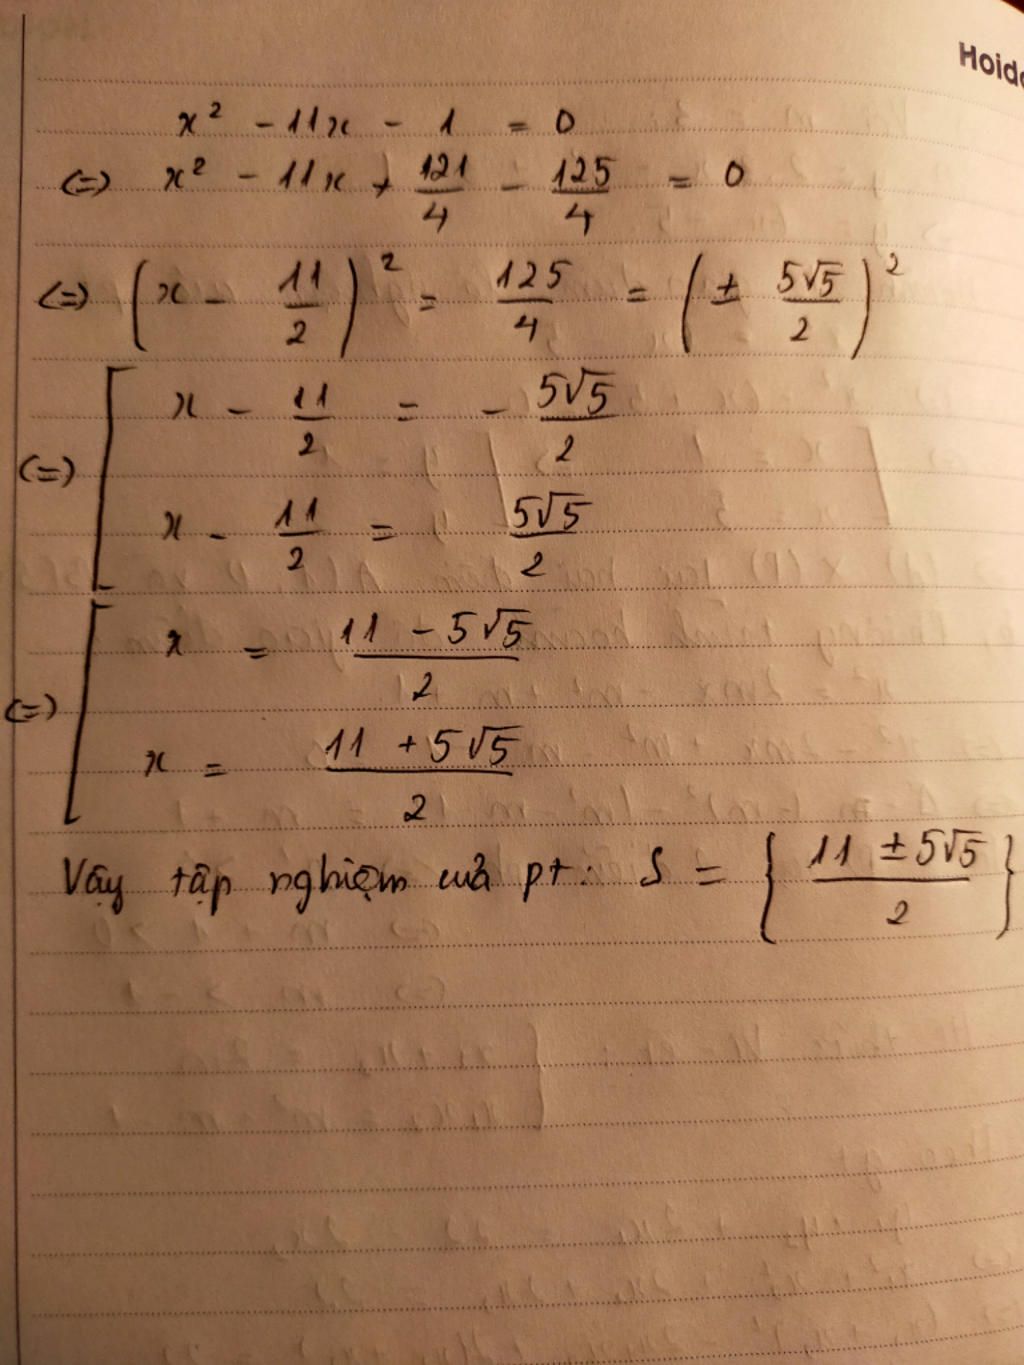 Hoido
x² - 11x - 1 = 0
(=) x² - 11x + 121/4 - 125/4 = 0
(=) (x - 11/2)² = 125/4 = (± 5√5/2)²
(=) [ x - 11/2 = - 5√5/2
x - 11/2 = 5√5/2
(=) [ x = (11 - 5√5)/2
x = (11 + 5√5)/2
Vậy tập nghiệm của pt: S = { (11 ± 5√5)/2 }